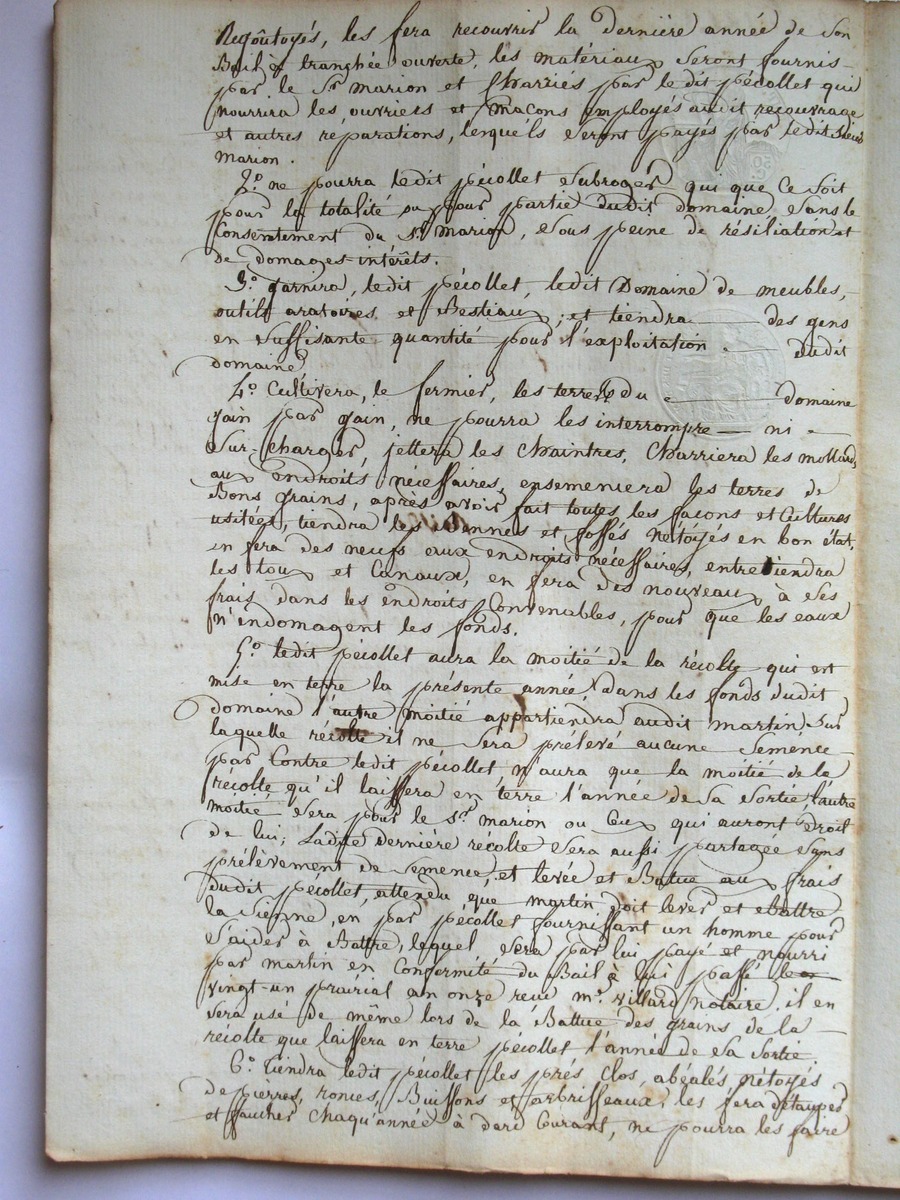 Regoûtoyés, les fera recouvrir la dernière année de son
Bail à tranchée ouverte, les matériaux seront fournis
par le Sr marion et charriés par le dit pécollet qui
nourrira les ouvriers et macons employés audit recouvrage
et autres réparations, lenquels seront payés par ledit Sieur
marion.
2.o ne pourra ledit pécollet subroger qui que ce soit
pour la totalité ou pour partie dudit domaine, sans le
Consentement du Sr marion, sous peine de résiliation et
de domages-intérêts.
3.o garnira, ledit pécollet, ledit Domaine de meubles,
outils aratoires et Bestiaux, et tiendra des gens
en suffisante quantité pour l'exploitation dudit
domaine
4.o Cultivera, le fermier, les terres du domaine
gain par gain, ne pourra les interrompre ni
sur-charger, jettera les Chaintres, Charriera les mollards
aux endroits nécessaires, ensemencera les terres de
Bons grains, après avoir fait toutes les facons et Cultures
usitées, tiendra les et fossés nétoyés en bon état,
en fera des neufs aux endroits nécessaires, entretiendra
les toux et Canaux, en fera des nouveaux à ses
frais dans les endroits Convenables, pour que les eaux
n'endomagent les fonds.
5.o ledit pécollet aura la moitié de la récolte qui est
mise en terre la présente année, dans les fonds dudit
domaine l'autre moitié appartiendra audit martin sur
laquelle récolte il ne sera prélevé aucune semence
par Contre ledit pécollet n'aura que la moitié de la
récolte qu'il laissera en terre l'année de sa sortie, l'autre
moitié sera pour le Sr marion ou Ceux qui auront droit
de lui; Ladite dernière récolte sera aussi partagée sans
prélèvement de semence, et levée et Batue aux frais
dudit pécollet, attendu que martin doit lever et battre
la sienne, en par pécollet fournissant un homme pour
s'aider à Battre, lequel sera par lui payé et nourri
par martin en Conformité du Bail à lui passé le
vingt-un prairial an onze reçu me villard notaire. il en
sera usé de même lors de la Battue des grains de la
récolte que laissera en terre pécollet l'année de sa sortie.
6.o tiendra ledit pécollet les prés Clos, abéalés, nétoyés
de pierres, ronces, Buissons et arbrisseaux, les fera détauper
et faucher chaqu'année à Courant, ne pourra les faire